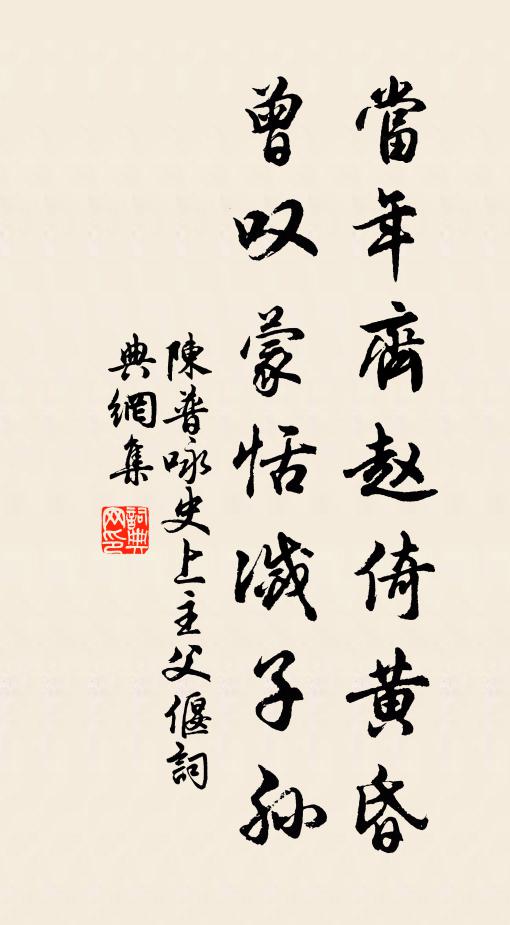 當年齊赵倚黄昏
曾叹蒙恬滅子孫
陳普咏史上主父偃詞
典網集
詞典
网印